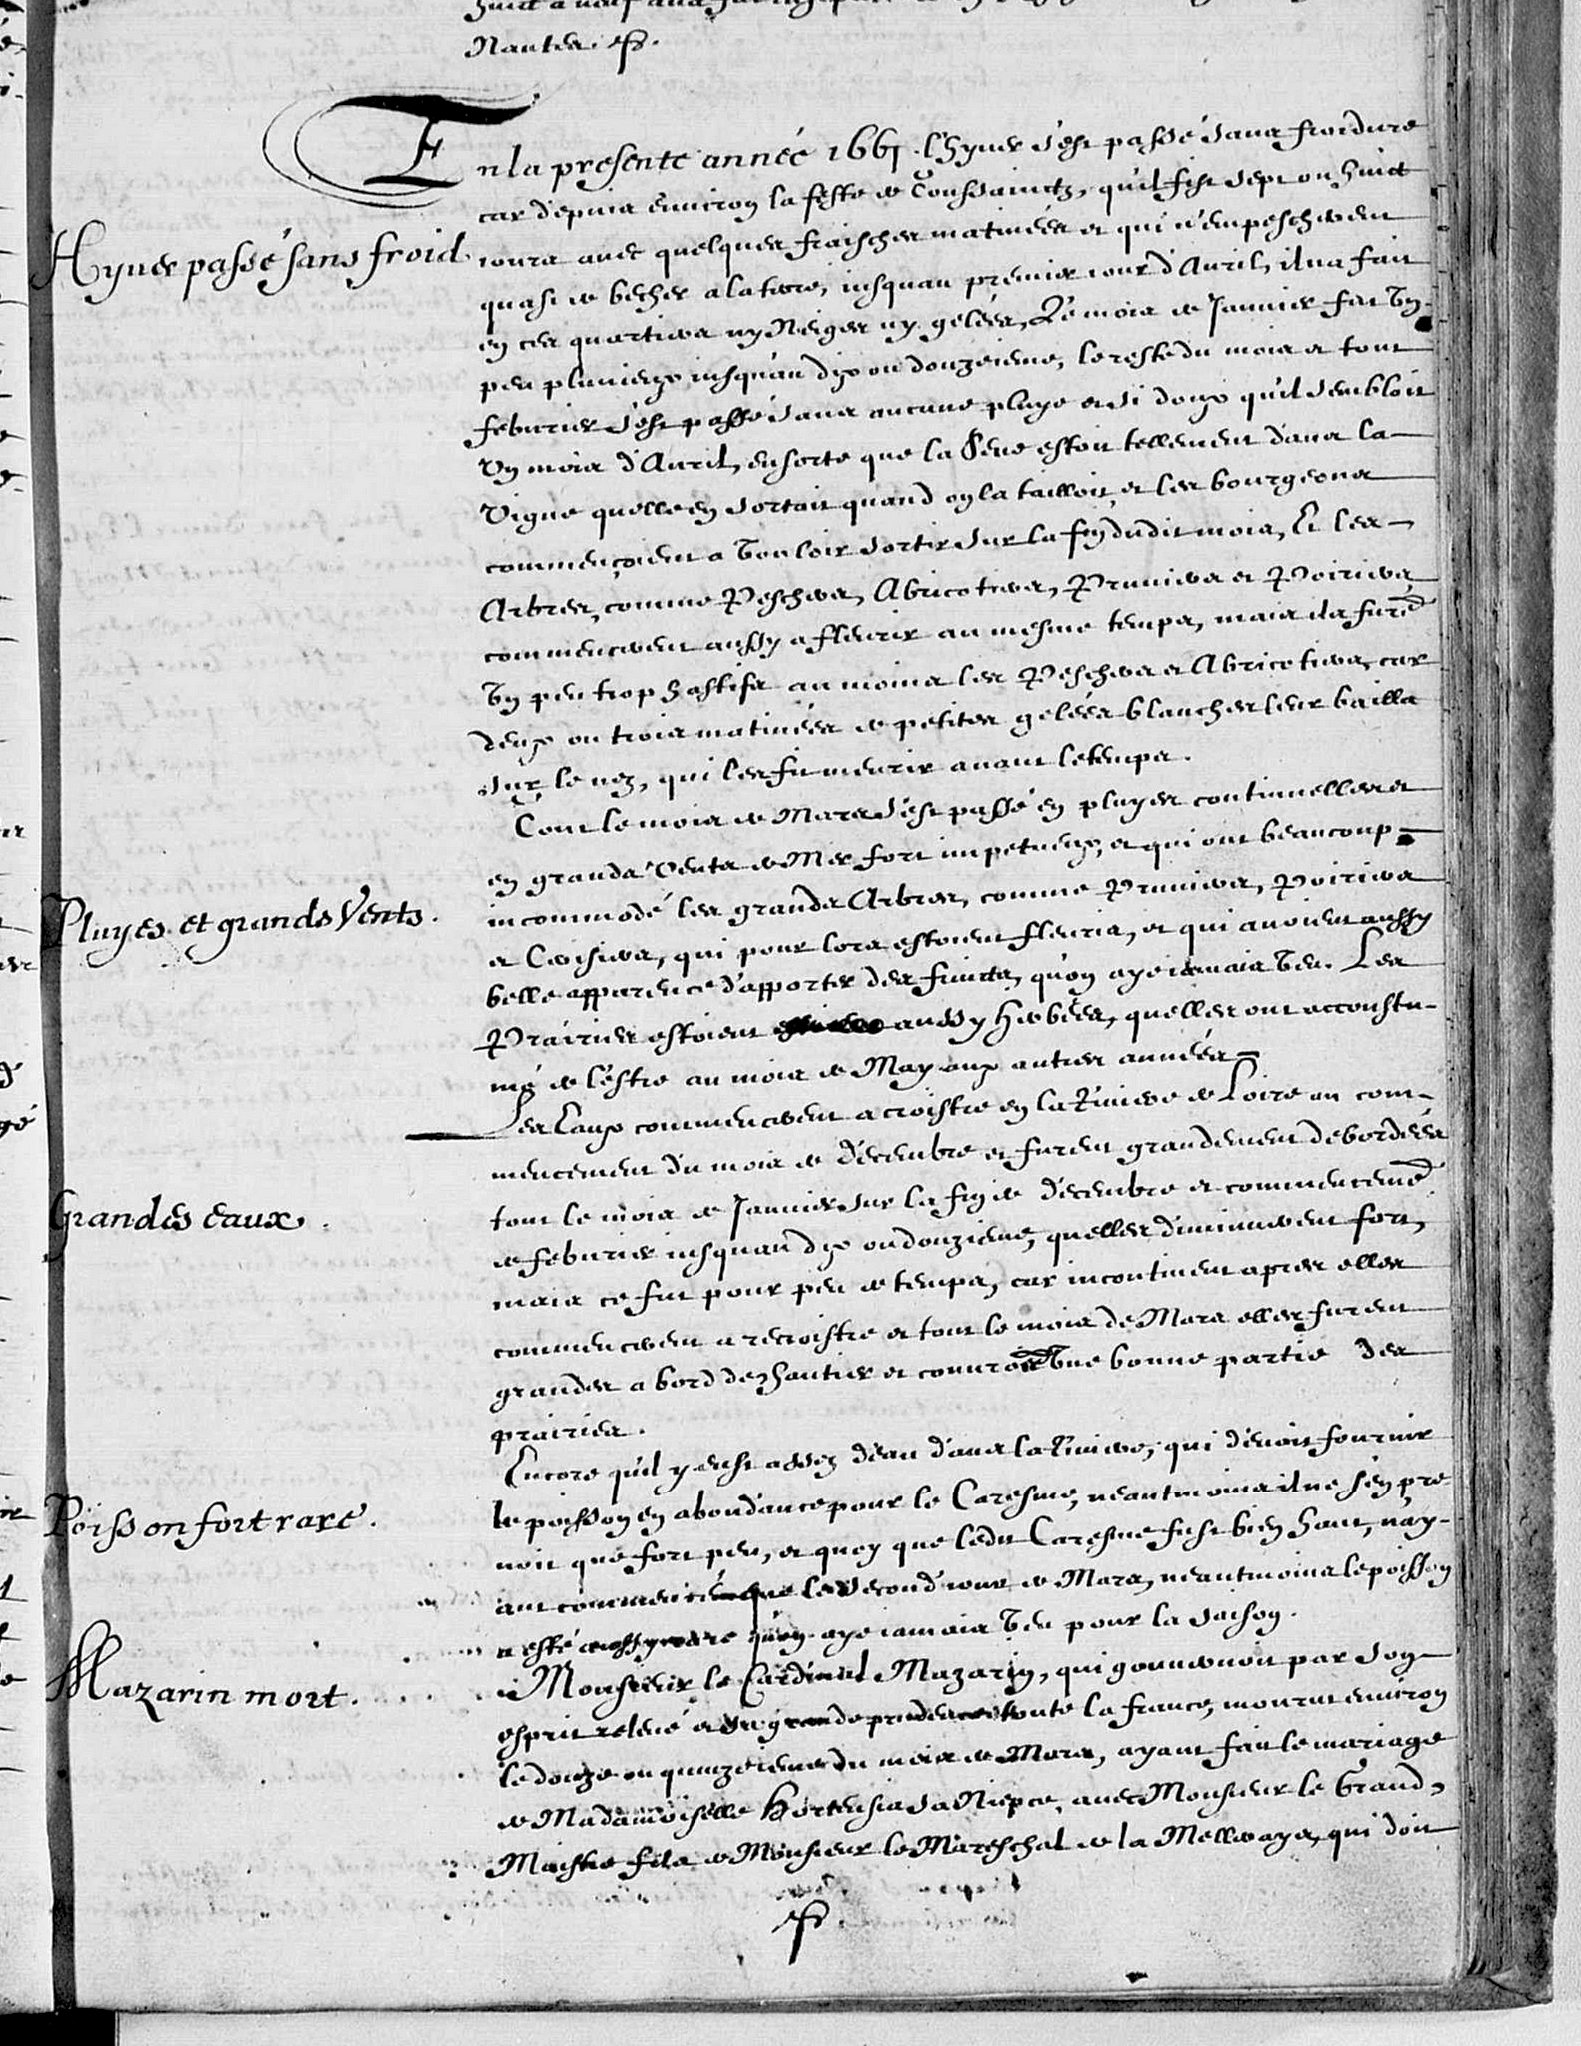 Nantes.
En la presente année 1661. l'hyver s'est passé sans froidure
car depuis environ la feste de Toussainctz, qu'il fist sept ou huict
Hyver passé sans froid.
iours avec quelques fraisches matinées et qui n'empescherent
quasi de becher a la terre, iusquau premier iour d'Avril, il na fait
en ces quartiers ny Neiges ny gelées, Le mois de Janvier fut un
peu pluvieux iusqu'au dix ou douzeieme, le reste du mois et tout
febvrier s'est passé sans aucune pluye et si doux qu'il sembloit
un mois d'Avril, en sorte que la seve estoit tellement dans la
vigne quelle en sortoit quand on la tailloit et les bourgeons
commençoient a vouloir sortir sur la fin dudit mois, Et les
Arbres, comme Peschers, Abricotiers, Pruniers et Poiriers
commencerent aussy a fleurir au mesme temps, mais ils furẽt
un peu trop hastifs au moins les Peschers et Abricotiers, car
deux ou trois matinées de petites gelées blanches leur bailla
sur le nez, qui les fit meurir avant le temps.
Tout le mois de Mars s'est passé en pluyes continuelles et
en grands vents de Mer fort impetueux, et qui ont beaucoup
Pluyes et grands Vents.
incommodé les grands Arbres, comme Pruniers, Poiriers
et Cerisiers, qui pour lors estoient fleuris, et qui avoient aussy
belle apparence d'apporter des fruicts, qu'on aye iamais veu. Les
Prairies estoient aussy herbées, quelles ont accoustu-
mé de l'estre au mois de May aux autres années
Les Eaux commencerent a croistre en la Riviere de Loire au com-
mencement du mois de decembre et furent grandement debordées
Grandes eaux.
tout le mois de Janvier sur la fin de decembre et commencemẽt
de febvrier iusquau dix ou douzieme, quelles diminuerent fort,
mais ce fut pour peu de temps, car incontinent apres elles
commencerent a recroistre et tout le mois de Mars elles furent
grandes a bord de hantier et couvroiẽt une bonne partie des
prairies.
Encore qu'il y eust assez d'eau dans la Riviere, qui devoit fournir
le poisson en abondance pour le Caresme, neantmoins il ne s'en pre
Poisson fort rare.
noit que fort peu, et quoy que ledit Caresme fust bien haut, n'ay-
ant commencé que le second iour de Mars, neantmoins le poisson
a esté aussy rare qu'on aye iamais veu pour la saison.
Monsieur le Cardinal Mazarin, qui gouvernoit par son
Mazarin mort.
esprit relevé et sa grande prudence toute la france, mourut environ
le douze ou quinzeieme du mois de Mars, ayant fait le mariage
de Madamoiselle Hortensia sa Niepce avec Monsieur le Grand
Maistre fils de Monsieur le Mareschal de la Mellerays, qui doit